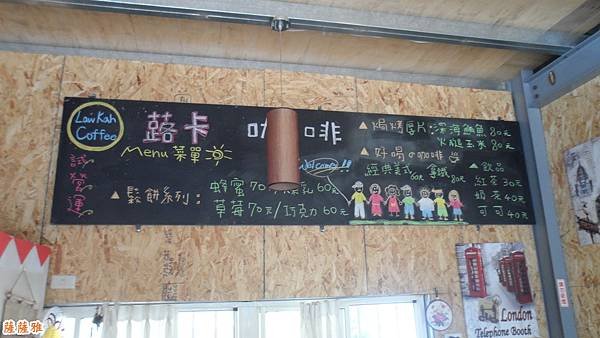 Law Kah
Coffee
蕗卡 咖啡
Menu 菜單
試營運
welcome!!
▲鬆餅系列:
蜂蜜70 60元
草莓70元/巧克力60元
▲焗烤厚片:深海鮪魚80元
火腿玉米80元
▲好喝の咖啡
經典美式60元 拿鐵80元
▲飲品
紅茶30元
奶茶40元
可可40元
London
Telephone Booth
薩薩雅